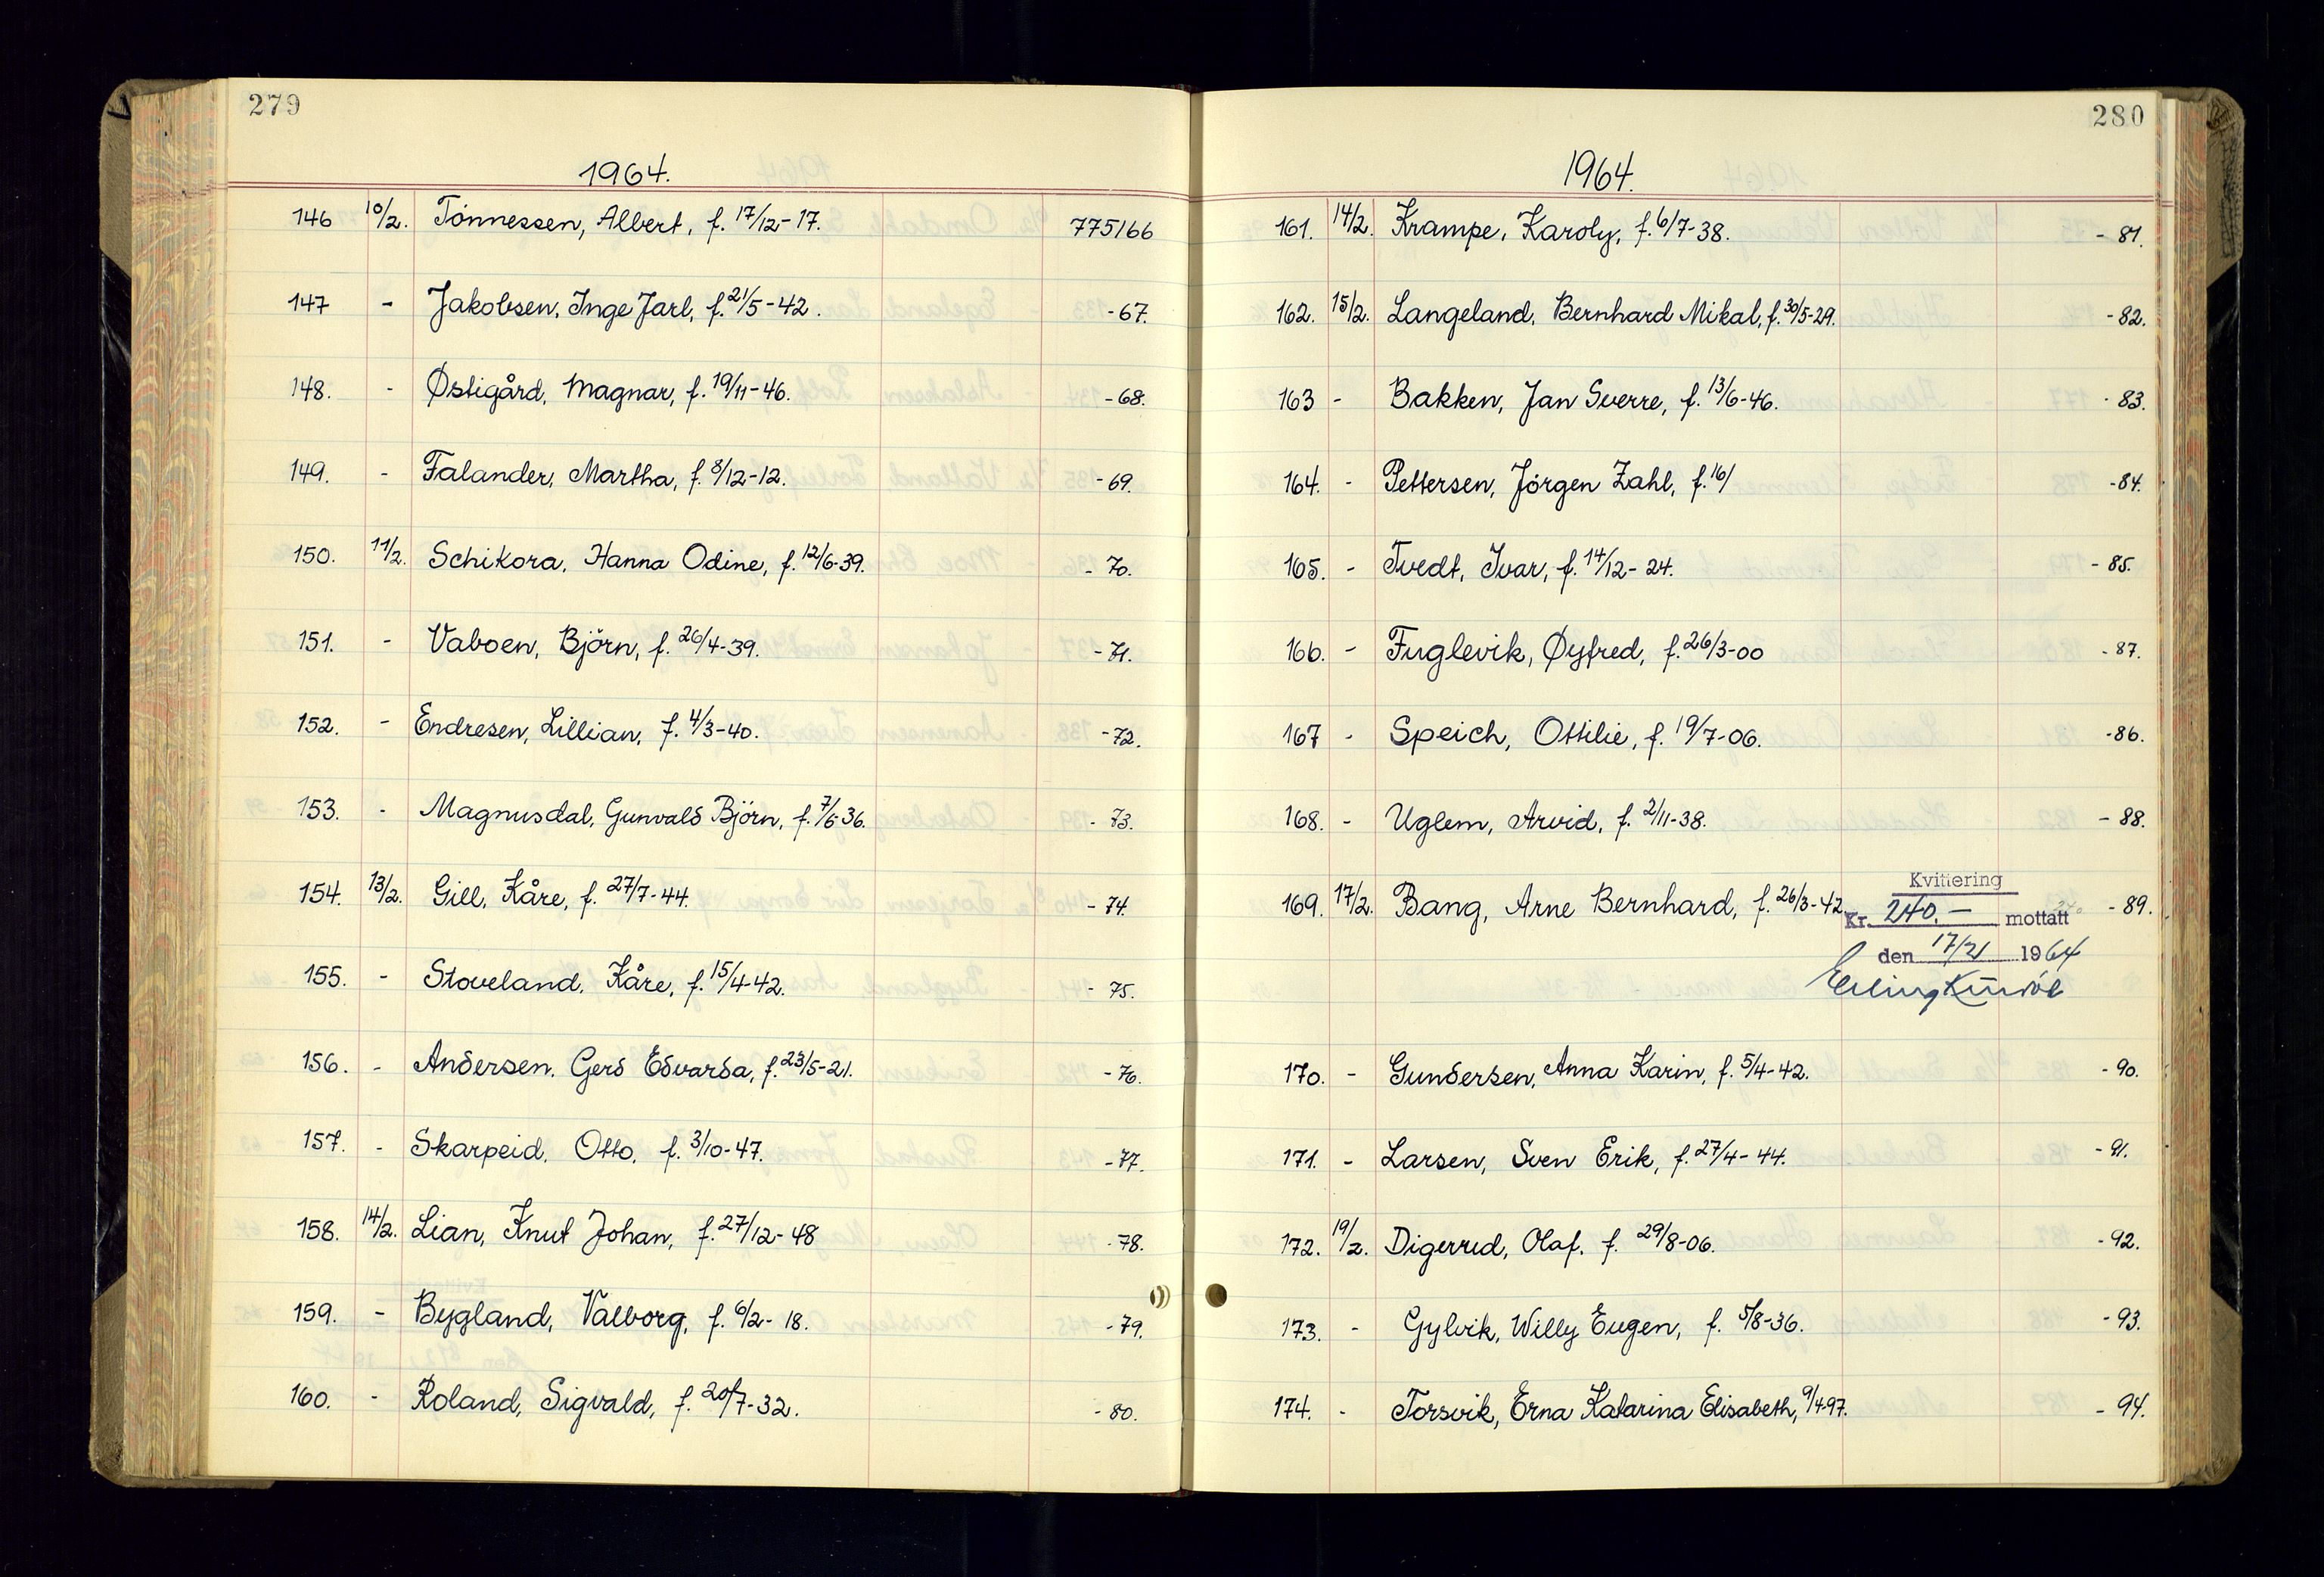 279
1964.
146 10/2. Tönnessen, Albert, f. 17/12-17. 775166
147 - Jakobsen, Inge Jarl, f. 21/5-42. -67.
148. - Østigård, Magnar, f. 19/11-46. -68.
149. - Falander, Martha, f. 8/12-12. -69.
150. 11/2. Schikora, Hanna Odine, f. 12/6-39. -70.
151. - Vaboen, Björn, f. 26/4-39. -71.
152. - Endresen, Lillian, f. 4/3-40. -72.
153. - Magnusdal, Gunvald Björn, f. 7/6-36. -73.
154. 13/2. Gill, Kåre, f. 27/7-44. -74.
155. - Stoveland, Kåre, f. 15/4-42. -75.
156. - Andersen, Gerd Edvarda, f. 23/5-21. -76.
157. - Skarpeid, Otto, f. 3/10-47. -77.
158. 14/2. Lian, Knut Johan, f. 27/12-48 -78.
159. - Bygland, Valborg, f. 6/2-18. -79.
160. - Roland, Sigvald, f. 20/7-32. -80.
280
1964.
161. 14/2. Krampe, Karoly, f. 6/7-38. -81.
162. 15/2. Langeland, Bernhard Mikal, f. 30/5-29. -82.
163 - Bakken, Jan Sverre, f. 13/6-46. -83.
164. - Pettersen, Jörgen Zahl, f. 16/ -84.
165. - Tvedt, Ivar, f. 14/12-24. -85.
166. - Fuglevik, Øyfred, f. 26/3-00 -87.
167 - Speich, Ottilie, f. 19/7-06. -86.
168. - Uglem, Arvid, f. 2/11-38. -88.
Kvittering
169. 17/2. Bang, Arne Bernhard, f. 26/3-42 Kr. 240.- mottatt -89.
den 17/2 1964
Erling
170. - Gundersen, Anna Karin, f. 5/4-42. -90.
171. - Larsen, Sven Erik, f. 27/4-44. -91.
172. 19/2. Digerud, Olaf, f. 29/8-06. -92.
173. - Gylvik, Willy Eugen, f. 5/8-36. -93.
174. - Torsvik, Erna Katarina Elisabeth, 9/4-97. -94.